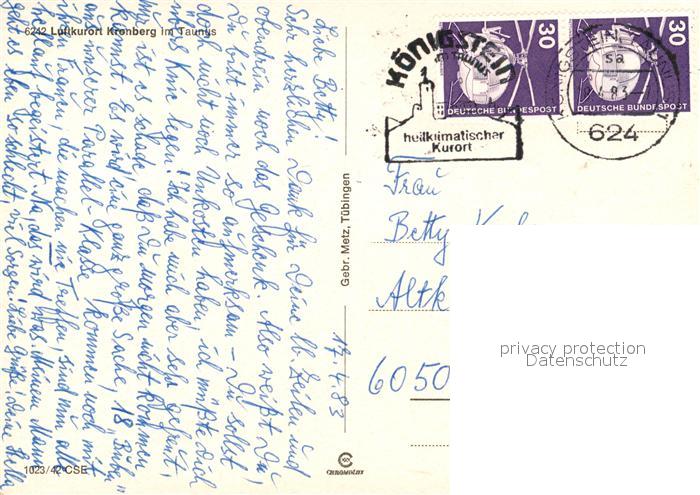 6242 Luftkurort Kronberg im Taunus
Liebe Betty!
Sehr herzlichen Dank für Deine lb. Zeilen und
obendrein noch das Geschenk. Also weißt Du
Du bist immer so aufmerksam – Du sollst
doch nicht noch Unkosten haben, ich müßte Dich
übers Knie legen! Ich hab mich aber sehr gefreut,
nur ist es schad, daß Du morgen nicht kommen
kannst. Es wird eine ganz große Sache, 18 "Bübli"
aus unserer Parallel-Klasse kommen noch mit
ihren Frauen, die machen nie Treffen, sind nun alle
hell begeistert. Na, das wird was. Meinem Mann
geht es eben so schlecht, viel Sorgen! Liebe Grüße! Deine Hella
17.4.83
1023/42 CSE
Gebr. Metz, Tübingen
CHROMOLUX
KÖNIGSTEIN
IM TAUNUS
heilklimatischer
Kurort
30
30
DEUTSCHE BUNDESPOST
DEUTSCHE BUNDESPOST
sa
83
624
Frau
Betty
Altk
6050
privacy protection
Datenschutz